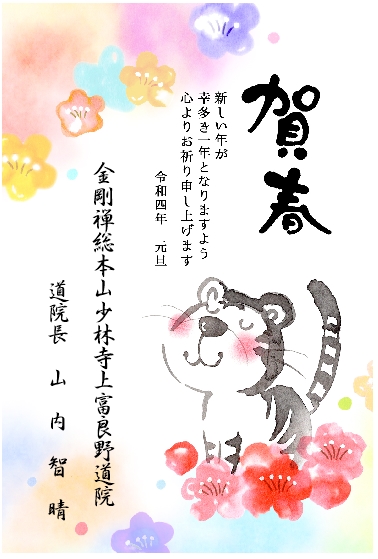 賀春
新しい年が
幸多き一年となりますよう
心よりお祈り申し上げます
令和四年　元旦
金剛禅総本山少林寺上富良野道院
道院長　山内智晴